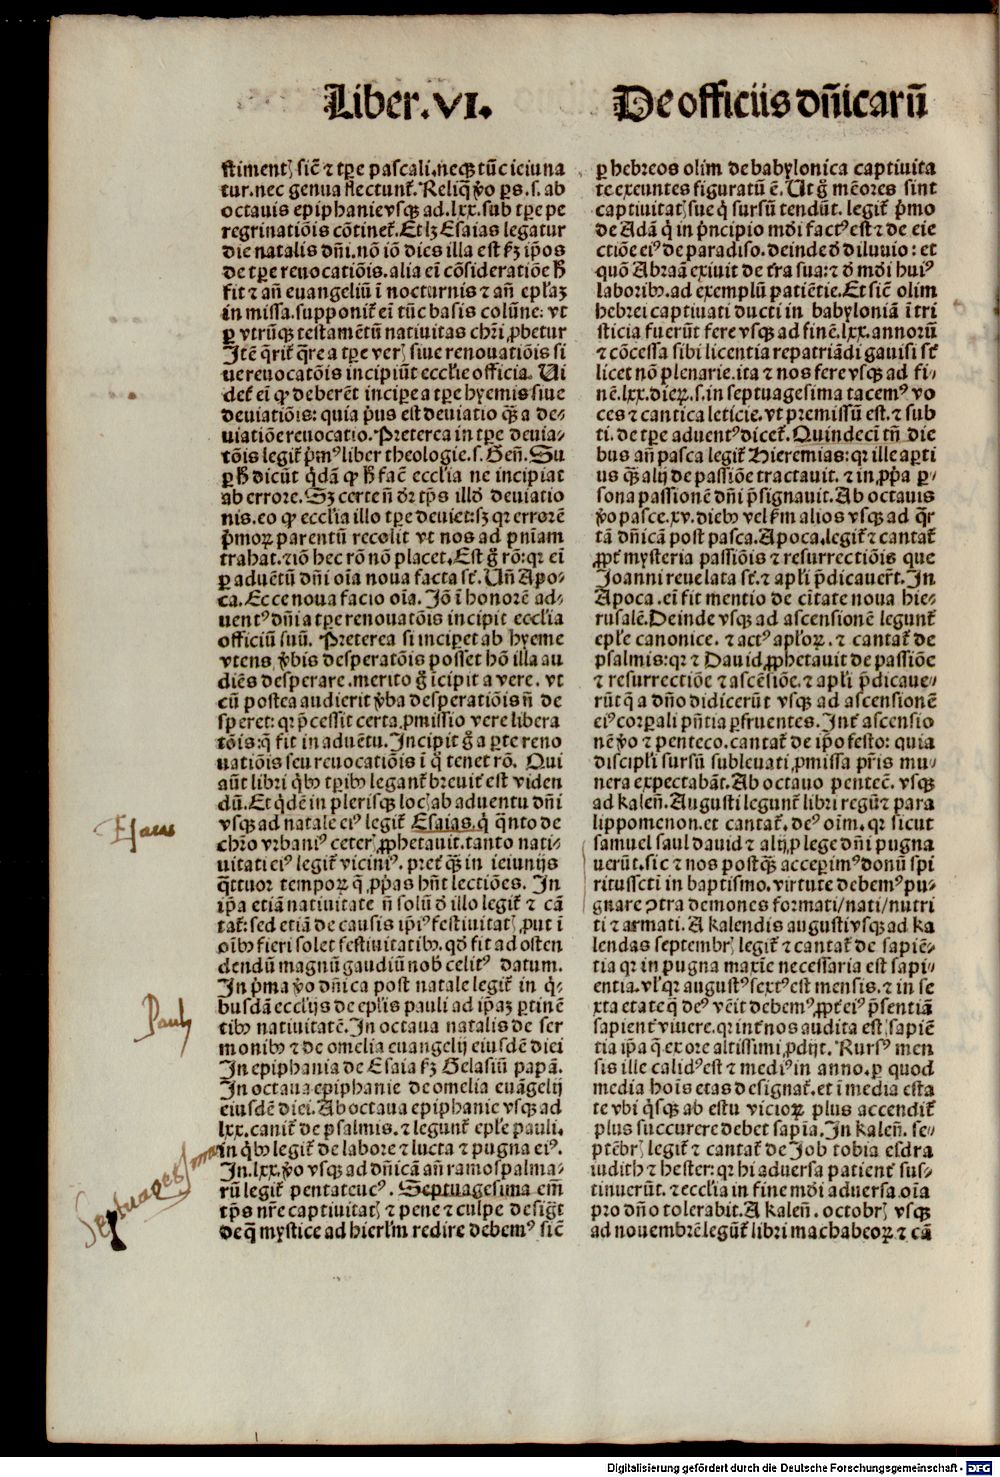 Liber.VI.
De officiis dñicarũ
ſtimentꝫ ſic̃ ⁊ tp̱e paſcali.neqꝫ tũc ieiuna
tur.nec genua flectunt̃. Reliq̃ ṽo ps.ſ. ab
octauis epiphanie vſqꝫ ad.lxx.ſub tp̱e pe
regrinatiõis cõtinet̃. Et lꝫ Eſaias legatur
die natalis dñi. nõ iõ dies illa eſt ẜꝫ ip̃os
de tp̱e reuocatiõis. alia eĩ cõſideratiõe h̃
fit ⁊ añ euangeliũ ĩ nocturnis ⁊ añ ep̃laꝫ
in miſſa. ſupponit̃ eĩ tũc baſis colũne: vt
ꝑ vtrũqꝫ teſtamẽtũ natiuitas chr̃i ꝓbetur
Itẽ q̃rit̃ q̃re a tp̱e verꝫ ſiue renouatiõis ſi
ue reuocatõis incipiũt eccl̃ie officia. Ui
det̃ eĩ ꝙ deberẽt incipere a tp̱e hyemis ſiue
deuiatiõis: quia p̃us eſt deuiatio q̃ꝫ a de⸗
uiatiõe reuocatio. Preterea in tp̱e deuia⸗
tõis legit̃ p̃mꝰ liber theologie.ſ. Geñ. Su
ꝑ h̃ dicũt q̃dã ꝙ h̃ facẽ eccl̃ia ne incipiat
ab errore. Sꝫ certe ñ dr̃ tp̃s illd̃ deuiatio
nis. eo ꝙ eccl̃ia illo tp̱e deuiet: ſꝫ qꝛ errorẽ
p̃moꝝ parentũ recolit vt nos ad pñiam
trahat. ⁊ iõ hec rõ nõ placet. Eſt g̃ rõ: qꝛ eĩ
ꝑ aduẽtũ dñi oĩa noua facta ſt̃. Uñ Apo⸗
ca. Ecce noua facio oĩa. Iõ ĩ honorẽ ad⸗
uentꝰ dñi a tp̱e renouatõis incipit eccl̃ia
officiũ ſuũ. Preterea ſi inciperet ab hyeme
vtens v̾bis deſperatõis poſſet hõ illa au
diẽs deſperare. merito g̃ ĩcipit a vere. vt
cũ poſtea audierit v̾ba deſperatiõis ñ de
ſperet: qꝛ p̃ceſſit certa ꝓmiſſio vere libera
tõis: q̃ fit in aduẽtu. Incipit g̃ a parte reno
uatiõis ſeu reuocatiõis ĩ q̃ tenet rõ. Qui
aũt libri q̃bꝫ tp̱ibꝫ legant̃ breuit̃ eſt viden
dũ. Et q̃dẽ in pleriſqꝫ locꝫ ab aduentu dñi
vſqꝫ ad natale eiꝰ legit̃ Eſaias. q̃ q̃nto de
chr̃o vrbaniꝰ ceterꝫ ꝓphetauit. tanto nati⸗
uitati eiꝰ legit̃ viciniꝰ. pret̃ q̃ꝫ in ieiunijs
q̃ttuor temporꝝ q̃ ꝓpas hñt lectiões. In
ip̃a etiã natiuitate ñ ſolũ d̃ illo legit̃ ⁊ cã
tat̃: ſed etiã de cauſis ip̃iꝰ feſtiuitatꝫ ꝓut ĩ
oĩbꝫ fieri ſolet feſtiuitatibꝫ. qd̃ fit ad oſten
dendũ magnũ gaudiũ nob̃ celitꝰ datum.
In p̃ma ṽo dñica poſt natale legit̃ in q̃⸗
buſdã eccl̃ijs de ep̃lis pauli ad ip̃aꝫ ꝑtinẽ
tibꝫ natiuitatẽ. In octaua natalis de ſer
monibꝫ ⁊ de omelia euangelij eiuſdẽ diei
In epiphania de Eſaia ẜꝫ Gelaſiũ papã.
In octaua epiphanie de omelia euãgelij
eiuſdẽ diei. Ab octaua epiphanie vſqꝫ ad
lxx. canit̃ de pſalmis. ⁊ legunt̃ ep̃le pauli.
in q̃bꝫ legit̃ de labore ⁊ lucta ⁊ pugna eiꝰ.
In.lxx. ṽo vſqꝫ ad dñicã añ ramos palma⸗
rũ legit̃ pentateucꝰ. Septuageſima em̃
tp̃s nr̃e captiuitatꝫ ⁊ pene ⁊ culpe deſig̃t
de q̃ myſtice ad hierl̃m redire debemꝰ ſic̃
ꝑ hebreos olim de babylonica captiuita
te exeuntes figuratũ ẽ. Ut g̃ mẽores ſint
captiuitatꝫ ſue q̃ ſurſũ tendũt. legit̃ p̃mo
de Adã q̃ in p̃ncipio mũdi factꝰ eſt ⁊ de eie
ctiõe eiꝰ de paradiſo. deinde d̃ diluuio: et
quõ Abraã exiuit de tr̃a ſua: ⁊ d̃ mũdi huiꝰ
laboribꝫ. ad exemplũ patiẽtie. Et ſic̃ olim
hebrei captiuati ducti in babyloniã ĩ tri
ſticia fuerũt fere vſqꝫ ad finẽ.lxx. annorũ
⁊ cõceſſa ſibi licentia repatriãdi gauiſi ſt̃
licet nõ plenarie. ita ⁊ nos fere vſqꝫ ad fi⸗
nẽ.lxx. dieꝝ.ſ. in ſeptuageſima tacemꝰ vo
ces ⁊ cantica leticie. vt premiſſũ eſt. ⁊ ſub
ti. de tp̱e aduentꝰ dicet̃. Quindeci tñ die
bus añ paſca legit̃ Hieremias: qꝛ ille aperti
us q̃ꝫ alij de paſſiõe tractauit. ⁊ in ꝓp̃a ꝑ⸗
ſona paſſionẽ dñi p̃ſignauit. Ab octauis
ṽo paſce.xv. diebꝫ vel ẜm alios vſqꝫ ad q̃r
tã dñicã poſt paſca. Apoca. legit̃ ⁊ cantat̃
ꝓpt̃ myſteria paſſiõis ⁊ reſurrectiõis que
Ioanni reuelata ſt̃. ⁊ ap̃li p̃dicauer̃t. In
Apoca. eĩ fit mentio de cĩtate noua hie⸗
ruſalẽ. Deinde vſqꝫ ad aſcenſionẽ legunt̃
ep̃le canonice. ⁊ actꝰ ap̃loꝝ. ⁊ cantat̃ de
pſalmis: qꝛ ⁊ Dauid ꝓphetauit de paſſiõe
⁊ reſurrectiõe ⁊ aſcẽſiõe. ⁊ ap̃li p̃dicaue⸗
rũt q̃ a dño didicerũt vſqꝫ ad aſcenſionẽ
eiꝰ corꝑali pñtia perfruentes. Int̃ aſcenſio
nẽ ṽo ⁊ penteco. cantat̃ de ip̃o feſto: quia
diſcipl̃i ſurſũ ſubleuati ꝓmiſſa pr̃is mu⸗
nera expectabãt. Ab octauo pentec̃. vſqꝫ
ad kaleñ. Auguſti legunt̃ libri regũ ⁊ para
lippomenon. et cantat̃. deꝰ oĩm. qꝛ ſicut
ſamuel ſaul dauid ⁊ alij ꝓ lege dñi pugna
uerũt. ſic ⁊ nos poſtq̃ꝫ accepimꝰ donũ ſpi
rituſſcti in baptiſmo. virtute debemꝰ pu⸗
gnare ꝯtra demones formati/nati/nutri
ti ⁊ armati. A kalendis auguſti vſqꝫ ad ka
lendas ſeptembrꝫ legit̃ ⁊ cantat̃ de ſapiẽ⸗
tia qꝛ in pugna maxĩe neceſſaria eſt ſapi⸗
entia. vl̃ qꝛ auguſtꝰ ſextꝰ eſt menſis. ⁊ in ſe
xta etate q̃ deꝰ vẽit debemꝰ ꝓpt̃ eiꝰ p̃ſentiã
ſapient̃ viuere. qꝛ int̃ nos audita eſt ſapiẽ
tia ip̃a q̃ ex ore altiſſimi ꝓdijt. Rurſꝰ men
ſis ille calidꝰ eſt ⁊ mediꝰ in anno. ꝑ quod
media hoĩs etas deſignat̃. et ĩ media eſta
te vbi q̃ſqꝫ ab eſtu vicioꝝ plus accendit̃
plus ſuccurere debet ſapĩa. In kaleñ. ſe⸗
ptẽbrꝫ legit̃ ⁊ cantat̃ de Iob tobia eſdra
iudith ⁊ heſter: qꝛ hi aduerſa patient̃ ſus⸗
tinuerũt. ⁊ eccl̃ia in fine mũdi aduerſa oĩa
pro dño tolerabit. A kaleñ. octobrꝫ vſqꝫ
ad nouembrẽ legũt̃ libri machabeoꝝ ⁊ cã
Eſaias
Pauli
Septuageſima
Digitalisierung gefördert durch die Deutsche Forschungsgemeinschaft - DFG